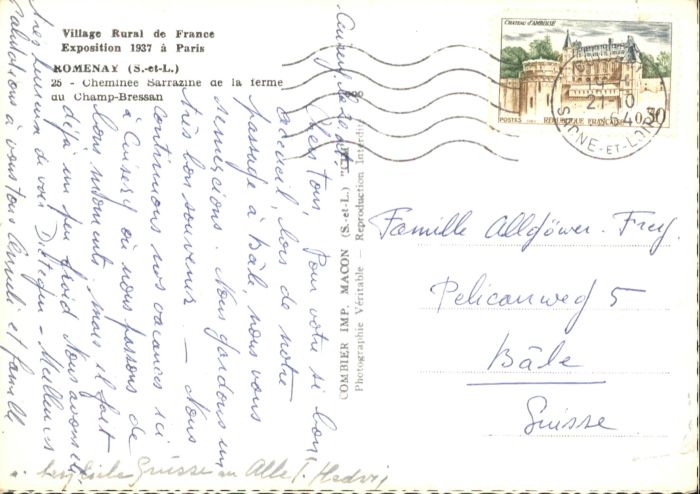 Village Rural de France
Exposition 1937 à Paris
ROMENAY (S.-et-L.)
25 - Cheminée Sarrazine de la ferme
du Champ-Bressan
CHATEAU D'AMBOISE
POSTES
REPUBLIQUE FRANÇAISE
0,30
21-10
SAONE-ET-LOIRE
COMBIER IMP. MACON (S.-et-L.)
Photographie Véritable - Reproduction Interdite
Chers tous, Pour votre si bon
accueil, lors de notre
passage à Bâle, nous vous
remercions. Nous gardons un
très bon souvenir - Nous
continuons nos vacances ici
à Cuisery où nous passons de
bons moments, mais il fait
déjà un peu froid. Nous avons été
très heureux de voir - Meilleures
salutations à vous tous et famille
Famille Allgöwer-Frey
Pelicanweg 5
Bâle
Suisse
Grüsse an Alle